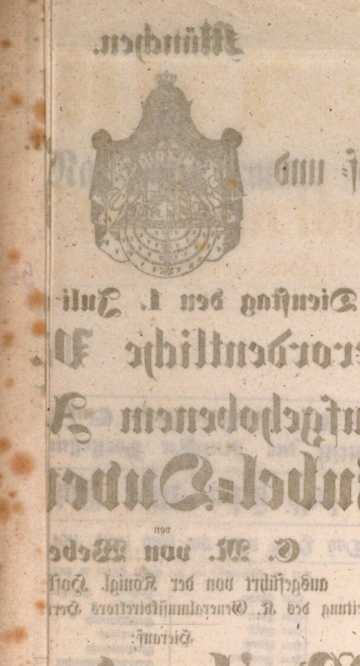 München.
f= und
Dienstag den 1. Juli
erordentliche V
ufgehobenem A
ubel=Ouver
von
C. M. von Webe
ausgeführt von der Königl. Hof
eitung des K. Generalmusikdirektors Herr
Hierauf: